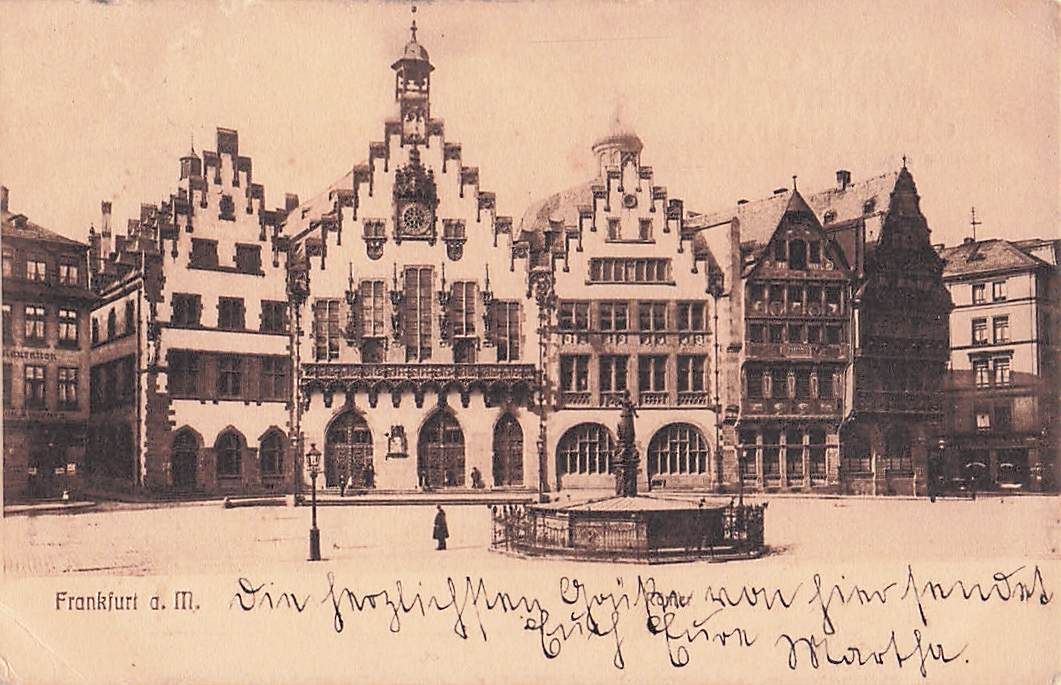 Frankfurt a. M.
Die herzlichsten Grüße von hier sendet
Euch Eure
Martha.